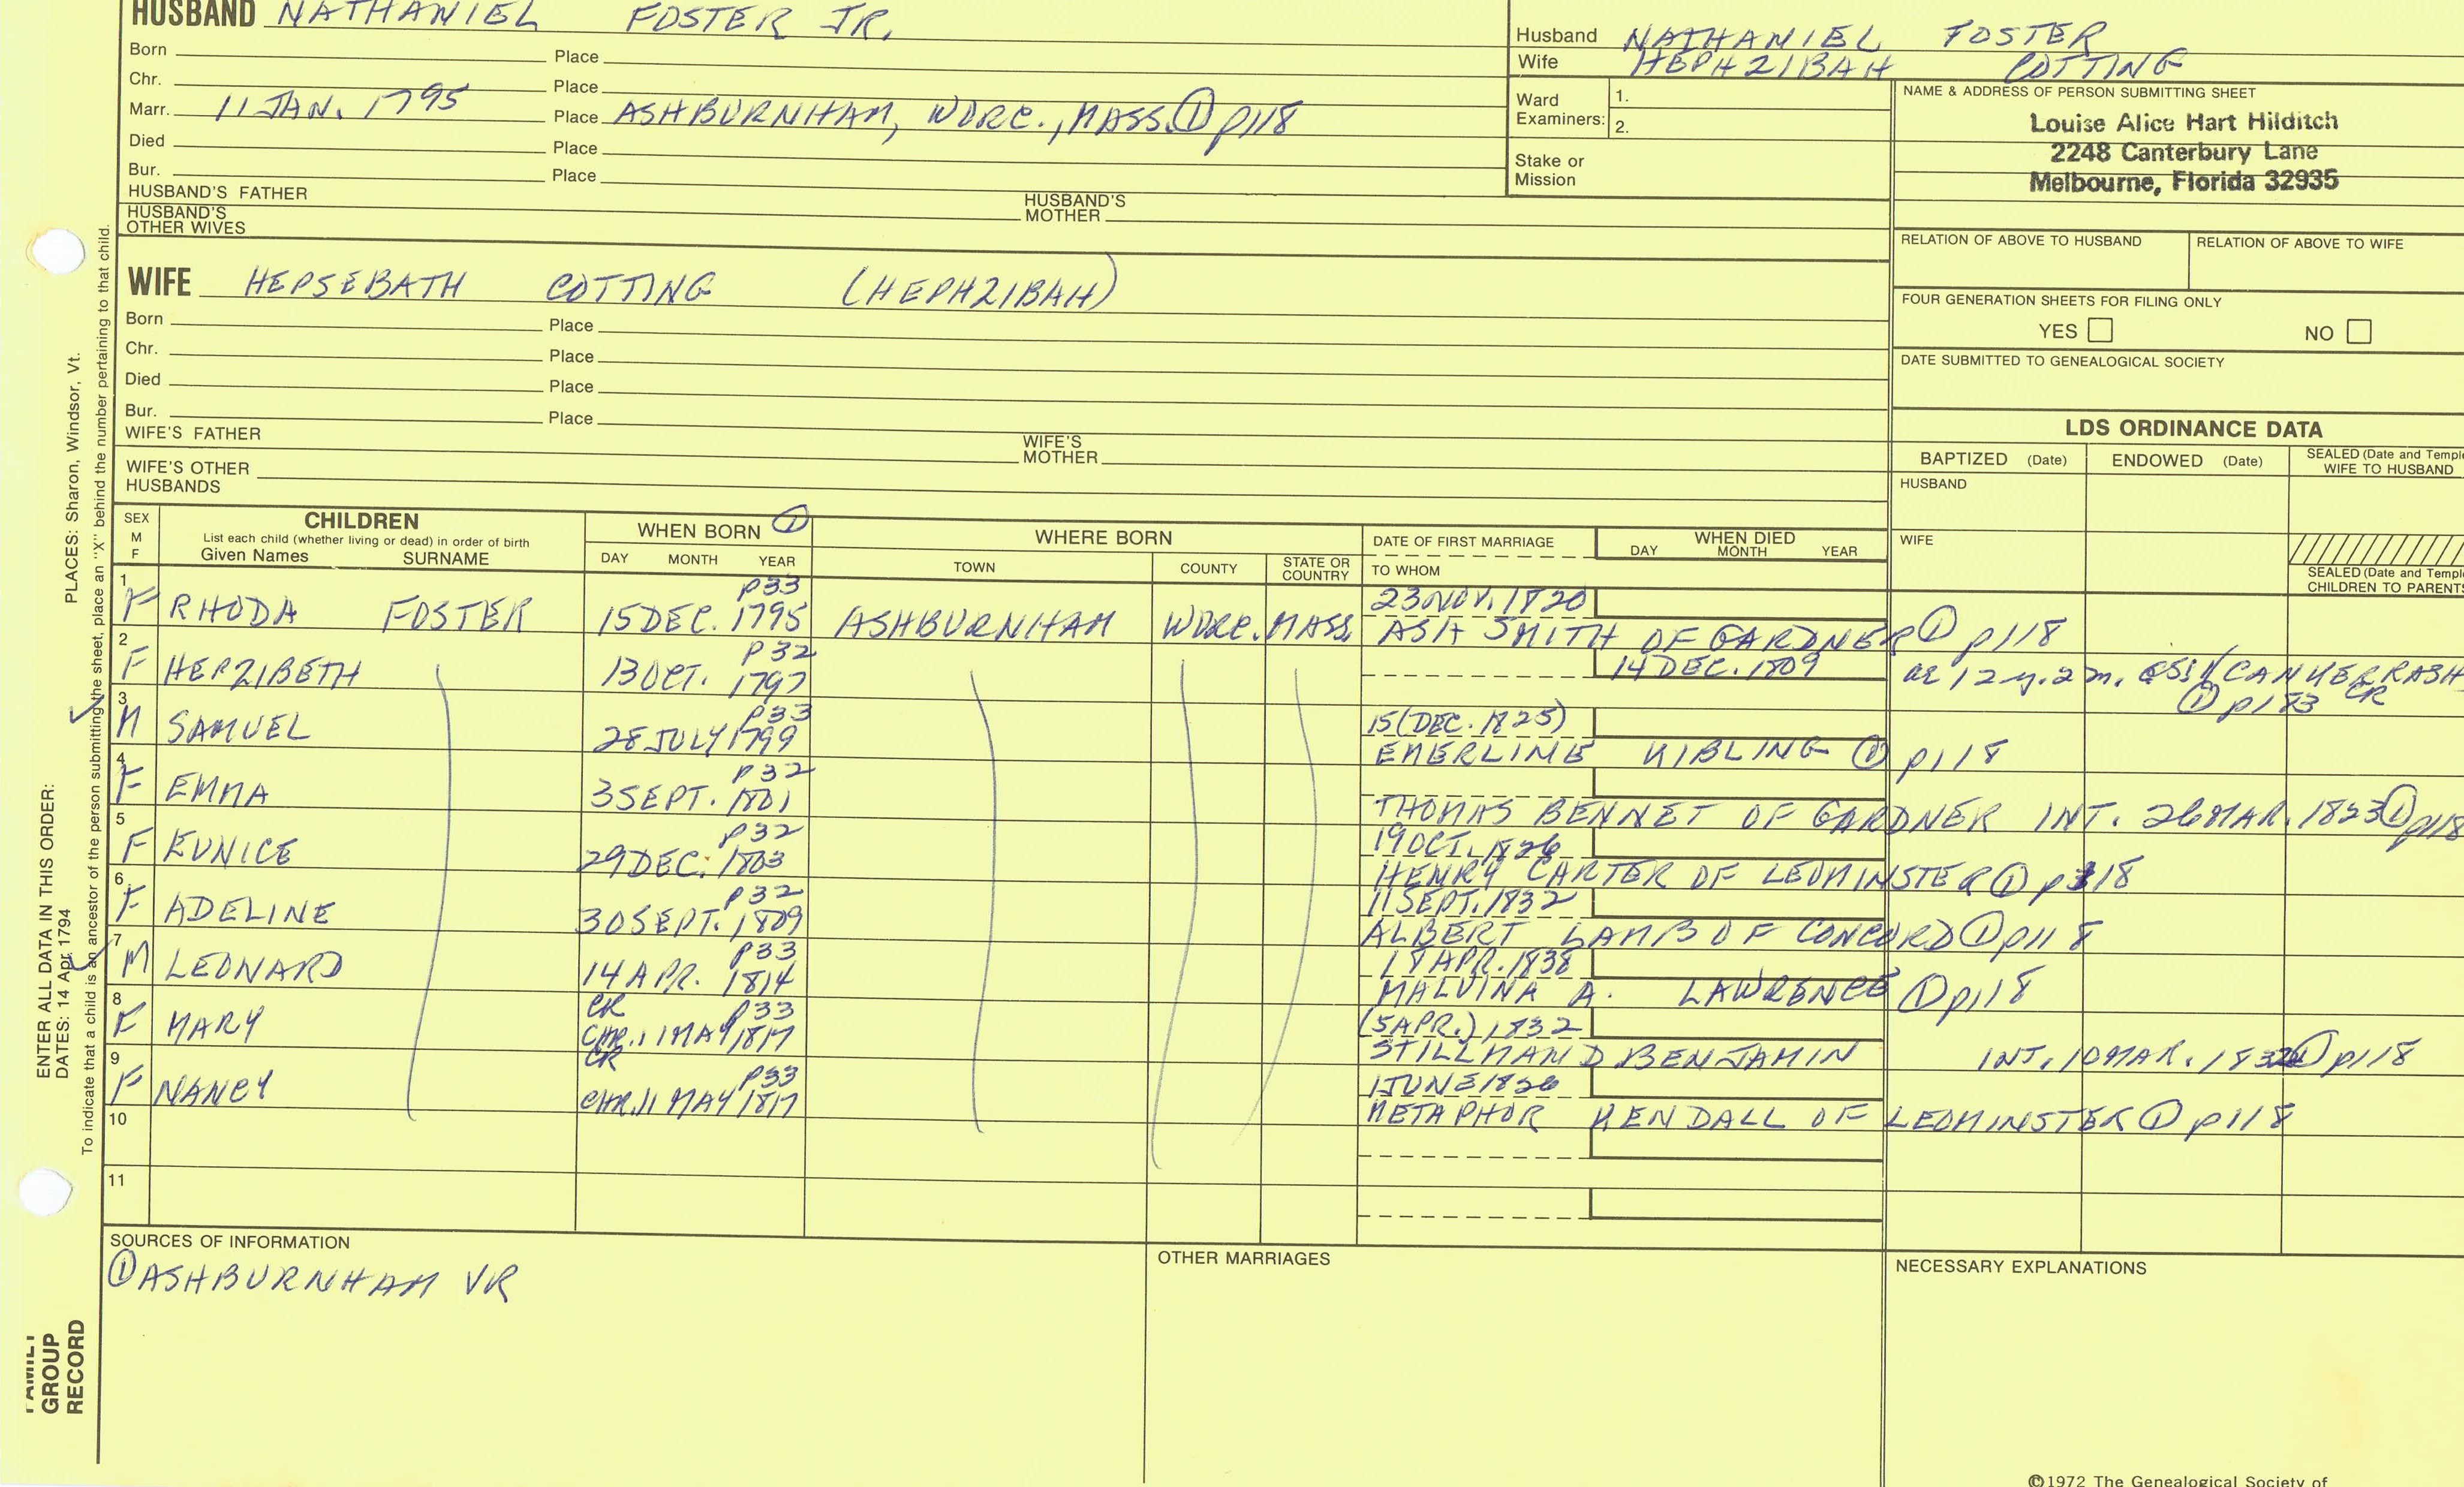 HUSBAND NATHANIEL FOSTER JR.
Born Place
Chr. Place
Marr. 11 JAN. 1795 Place ASHBURNHAM, WORC., MASS. ① p118
Died Place
Bur. Place
HUSBAND'S FATHER HUSBAND'S MOTHER
HUSBAND'S OTHER WIVES
Husband NATHANIEL FOSTER
Wife HEPHZIBAH COTTING
Ward Examiners: 1.
2.
Stake or Mission
NAME & ADDRESS OF PERSON SUBMITTING SHEET
Louise Alice Hart Hilditch
2248 Canterbury Lane
Melbourne, Florida 32935
RELATION OF ABOVE TO HUSBAND RELATION OF ABOVE TO WIFE
FOUR GENERATION SHEETS FOR FILING ONLY
YES NO
DATE SUBMITTED TO GENEALOGICAL SOCIETY
WIFE HEPSEBATH COTTING (HEPHZIBAH)
Born Place
Chr. Place
Died Place
Bur. Place
WIFE'S FATHER WIFE'S MOTHER
WIFE'S OTHER HUSBANDS
LDS ORDINANCE DATA
BAPTIZED (Date) ENDOWED (Date) SEALED (Date and Temple
WIFE TO HUSBAND
HUSBAND
WIFE
SEALED (Date and Temple
CHILDREN TO PARENTS
SEX M F
CHILDREN
List each child (whether living or dead) in order of birth
Given Names SURNAME
WHEN BORN ①
DAY MONTH YEAR
WHERE BORN
TOWN COUNTY STATE OR COUNTRY
DATE OF FIRST MARRIAGE
TO WHOM
WHEN DIED
DAY MONTH YEAR
1 p33 23 NOV. 1820
F RHODA FOSTER 15 DEC. 1795 ASHBURNHAM WORC. MASS. ASA SMITH OF GARDNER ① p118
2 p32 14 DEC. 1809 ae 12 y. 2 m.
F HEPZIBETH 13 OCT. 1797 ① p183 CR
3 p33 15 (DEC. 1825)
M SAMUEL 28 JULY 1799 EMERLINE KIBLING ① p118
4 p32
F EMMA 3 SEPT. 1801 THOMAS BENNET OF GARDNER INT. 26 MAR. 1823 ① p118
5 p32 19 OCT. 1826
F EUNICE 29 DEC. 1803 HENRY CARTER OF LEOMINSTER ① p118
6 p32 11 SEPT. 1832
F ADELINE 30 SEPT. 1809 ALBERT LAMB OF CONCORD ① p118
7 p33 18 APR. 1838
M LEONARD 14 APR. 1814 MALVINA A. LAWRENCE ① p118
8 CR p33 (5 APR.) 1832
F MARY CHR. 11 MAY 1817 STILLMAN D BENJAMIN INT. 10 MAR. 1832 ① p118
9 CR p33 1 JUNE 1826
F NANCY CHR. 11 MAY 1817 METAPHOR KENDALL OF LEOMINSTER ① p118
10
11
SOURCES OF INFORMATION
① ASHBURNHAM VR
OTHER MARRIAGES
NECESSARY EXPLANATIONS
©1972 The Genealogical Society of
PLACES: Sharon, Windsor, Vt.
ENTER ALL DATA IN THIS ORDER:
DATES: 14 Apr 1794
To indicate that a child is an ancestor of the person submitting the sheet, place an "X" behind the number pertaining to that child.
FAMILY
GROUP
RECORD